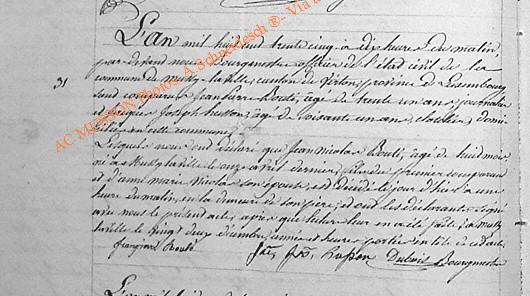 L'an mil huit cent trente cinq, à dix heures du matin,
par devant nous Bourgmestre officier de l'état civil de la
commune de Mussy-la-ville, canton de Virton, province de Luxembourg
sont comparus Jean Pierre Bouli, âgé de trente un ans, journalier
31
et Joseph husson, âgé de soixante un ans, domi
ciliés en cette commune,
Lesquels nous ont déclaré que Jean Nicolas Bouli, âgé de huit mois
né à Mussy la ville le onze avril dernier, fils du premier comparant
et d'anne marie Nicolas son épouse, est décédé le jour d'hier à une
heure du matin, en la demeure de son père, et ont les déclarants signé
avec nous le présent acte, après que lecture leur en a été faite, à Mussy
la ville le vingt deux décembre, année et heure portées en tête de cet acte,
Dubois Bourgmestre
L'an mil huit
AC MUSSON Photos: A. Schoentesch ®- Via